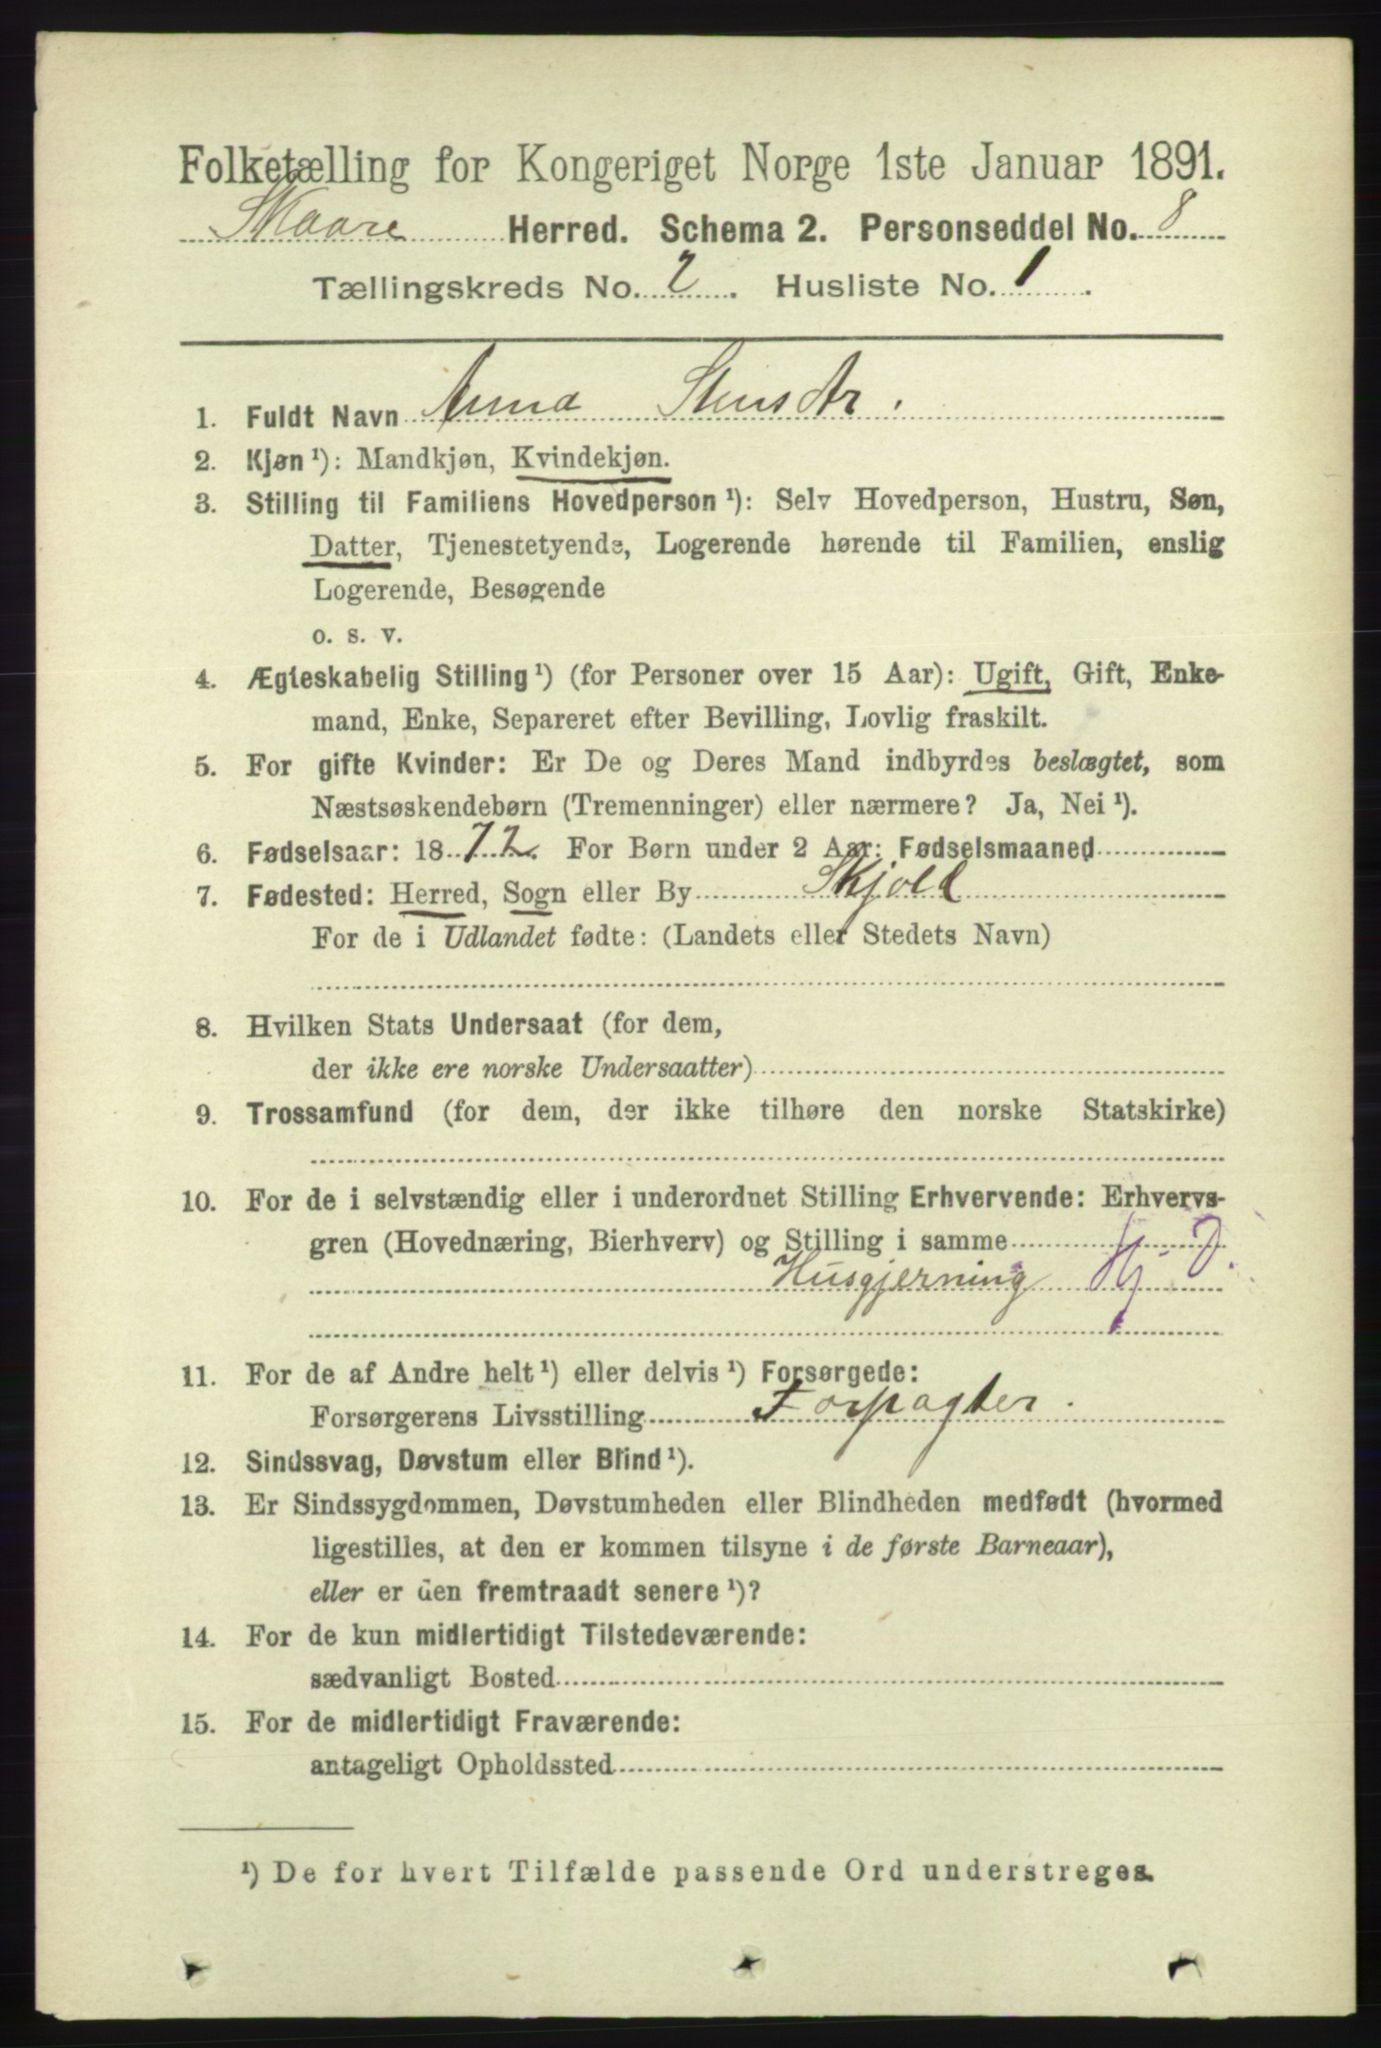 Folketælling for Kongeriget Norge 1ste Januar 1891.
Skaare Herred. Schema 2. Personseddel No. 8
Tællingskreds No. 2. Husliste No. 1.
1. Fuldt Navn Anna Stensdtr.
2. Kjøn ¹): Mandkjøn, Kvindekjøn.
3. Stilling til Familiens Hovedperson ¹): Selv Hovedperson, Hustru, Søn,
Datter, Tjenestetyende, Logerende hørende til Familien, enslig
Logerende, Besøgende
o. s. v.
4. Ægteskabelig Stilling ¹) (for Personer over 15 Aar): Ugift, Gift, Enke-
mand, Enke, Separeret efter Bevilling, Lovlig fraskilt.
5. For gifte Kvinder: Er De og Deres Mand indbyrdes beslægtet, som
Næstsøskendebørn (Tremenninger) eller nærmere? Ja, Nei ¹).
6. Fødselsaar: 1872. For Børn under 2 Aar: Fødselsmaaned
7. Fødested: Herred, Sogn eller By Skjold
For de i Udlandet fødte: (Landets eller Stedets Navn)
8. Hvilken Stats Undersaat (for dem,
der ikke ere norske Undersaatter)
9. Trossamfund (for dem, der ikke tilhøre den norske Statskirke)
10. For de i selvstændig eller i underordnet Stilling Erhvervende: Erhvervs-
gren (Hovednæring, Bierhverv) og Stilling i samme
Husgjerning Hj. D.
11. For de af Andre helt ¹) eller delvis ¹) Forsørgede:
Forsørgerens Livsstilling Forpagter.
12. Sindssvag, Døvstum eller Blind ¹).
13. Er Sindssygdommen, Døvstumheden eller Blindheden medfødt (hvormed
ligestilles, at den er kommen tilsyne i de første Barneaar),
eller er den fremtraadt senere ¹)?
14. For de kun midlertidigt Tilstedeværende:
sædvanligt Bosted
15. For de midlertidigt Fraværende:
antageligt Opholdssted
¹) De for hvert Tilfælde passende Ord understreges.